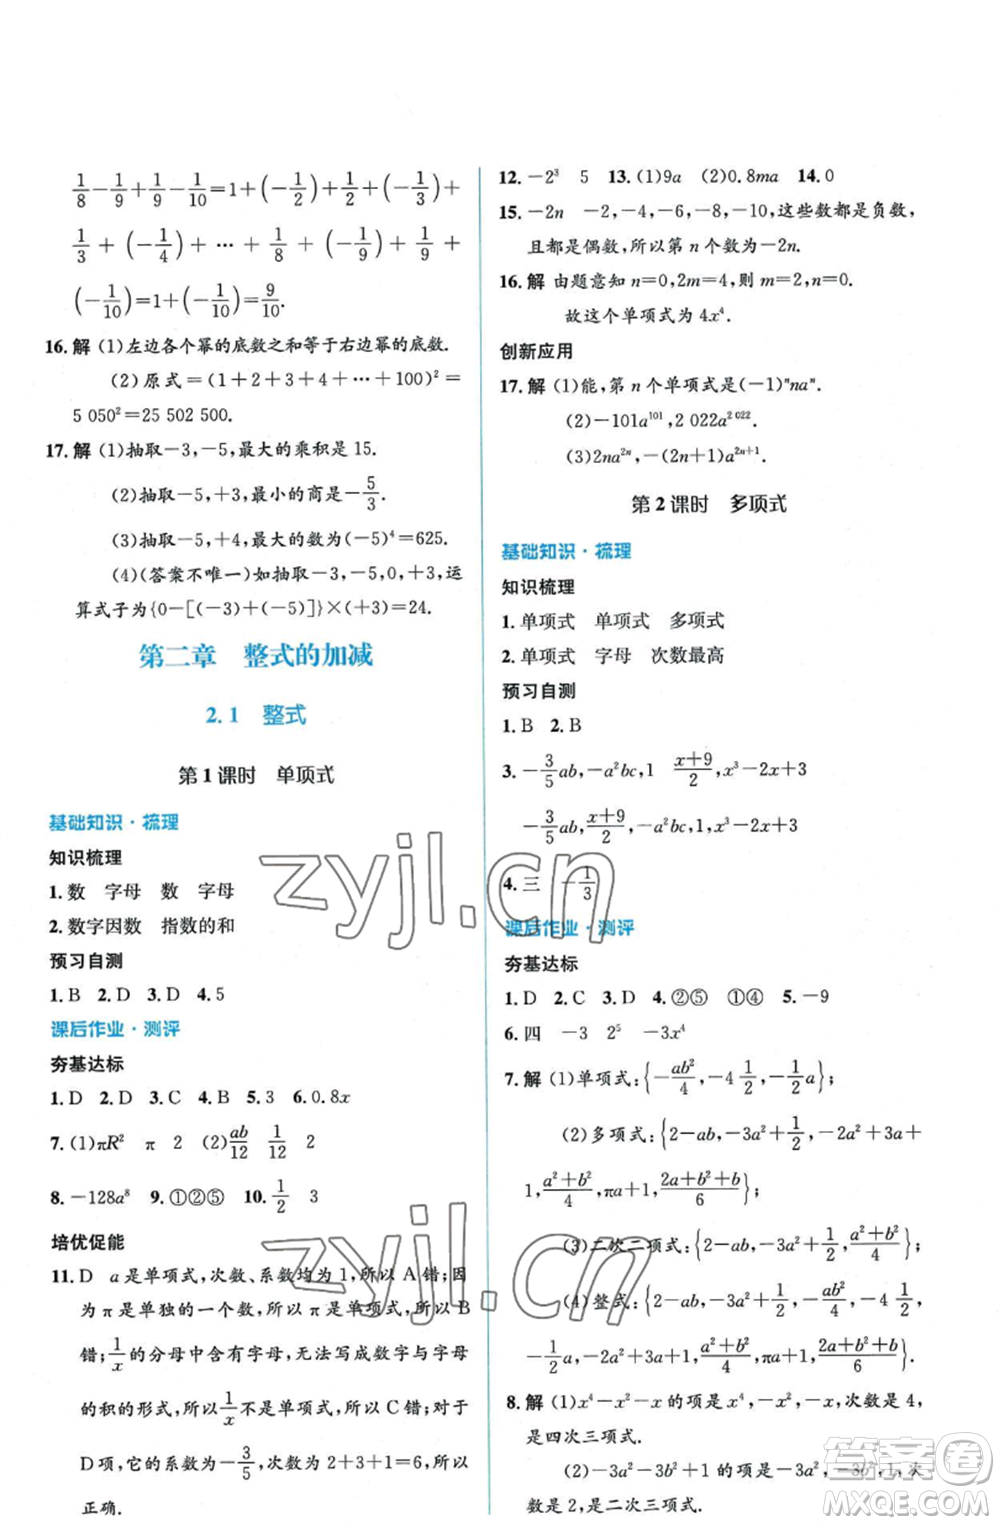 1/8－1/9＋1/9－1/10＝1＋(－1/2)＋1/2＋(－1/3)＋
1/3＋(－1/4)＋…＋1/8＋(－1/9)＋1/9＋
(－1/10)＝1＋(－1/10)＝9/10.
16. 解 (1)左边各个幂的底数之和等于右边幂的底数.
(2)原式＝(1＋2＋3＋4＋…＋100)²＝
5 050²＝25 502 500.
17. 解 (1)抽取－3,－5,最大的乘积是 15.
(2)抽取－5,＋3,最小的商是－5/3.
(3)抽取－5,＋4,最大的数为(－5)⁴＝625.
(4)(答案不唯一)如抽取－3,－5,0,＋3,运
算式子为{0－[(－3)＋(－5)]}×(＋3)＝24.
第二章 整式的加减
2.1 整式
第 1 课时 单项式
基础知识·梳理
知识梳理
1. 数 字母 数 字母
2. 数字因数 指数的和
预习自测
1. B 2. D 3. D 4. 5
课后作业·测评
夯基达标
1. D 2. D 3. C 4. B 5. 3 6. 0.8x
7. (1)πR² π 2 (2)ab/12 1/12 2
8. －128a⁸ 9. ①②⑤ 10. 1/2 3
培优促能
11. D a 是单项式,次数、系数均为 1,所以 A 错;因
为 π 是单独的一个数,所以 π 是单项式,所以 B
错;1/x的分母中含有字母,无法写成数字与字母
的积的形式,所以1/x不是单项式,所以 C 错;对于
D 项,它的系数为－3/5,次数为 2＋3＋1＝6,所以
正确.
12. －2³ 5 13. (1)9a (2)0.8ma 14. 0
15. －2n －2,－4,－6,－8,－10,这些数都是负数,
且都是偶数,所以第 n 个数为－2n.
16. 解 由题意知 n＝0,2m＝4,则 m＝2,n＝0.
故这个单项式为 4x⁴.
创新应用
17. 解 (1)能,第 n 个单项式是(－1)ⁿnaⁿ.
(2)－101a¹⁰¹,2 022a²⁰²².
(3)2na²ⁿ,－(2n＋1)a²ⁿ⁺¹.
第 2 课时 多项式
基础知识·梳理
知识梳理
1. 单项式 单项式 多项式
2. 单项式 字母 次数最高
预习自测
1. B 2. B
3. －3/5ab,－a²bc,1 (x＋9)/2,x³－2x＋3
－3/5ab,(x＋9)/2,－a²bc,1,x³－2x＋3
4. 三 －1/3
课后作业·测评
夯基达标
1. D 2. C 3. D 4. ②⑤ ①④ 5. －9
6. 四 －3 2⁵ －3x⁴
7. 解 (1)单项式:{－ab²/4,－4 1/2,－1/2a};
(2)多项式:{2－ab,－3a²＋1/2,－2a²＋a＋
1,(a²＋b²)/4,πa＋1,(2a＋b²＋b)/6};
(3)二次二项式:{2－ab,－3a²＋1/2,(a²＋b²)/4};
(4)整式:{2－ab,－3a²＋1/2,－ab²/4,－4 1/2,
－1/2a,－2a²＋a＋1,(a²＋b²)/4,πa＋1,(2a＋b²＋b)/6}.
8. 解 (1)x⁴－x²－x 的项是 x⁴,－x²,－x,次数是 4,
是四次三项式.
(2)－2a²－3b²＋1 的项是－2a²,－3b²,1,次
数是 2,是二次三项式.
zyjl.cn
zyjl.cn
答案卷
MXQE.COM